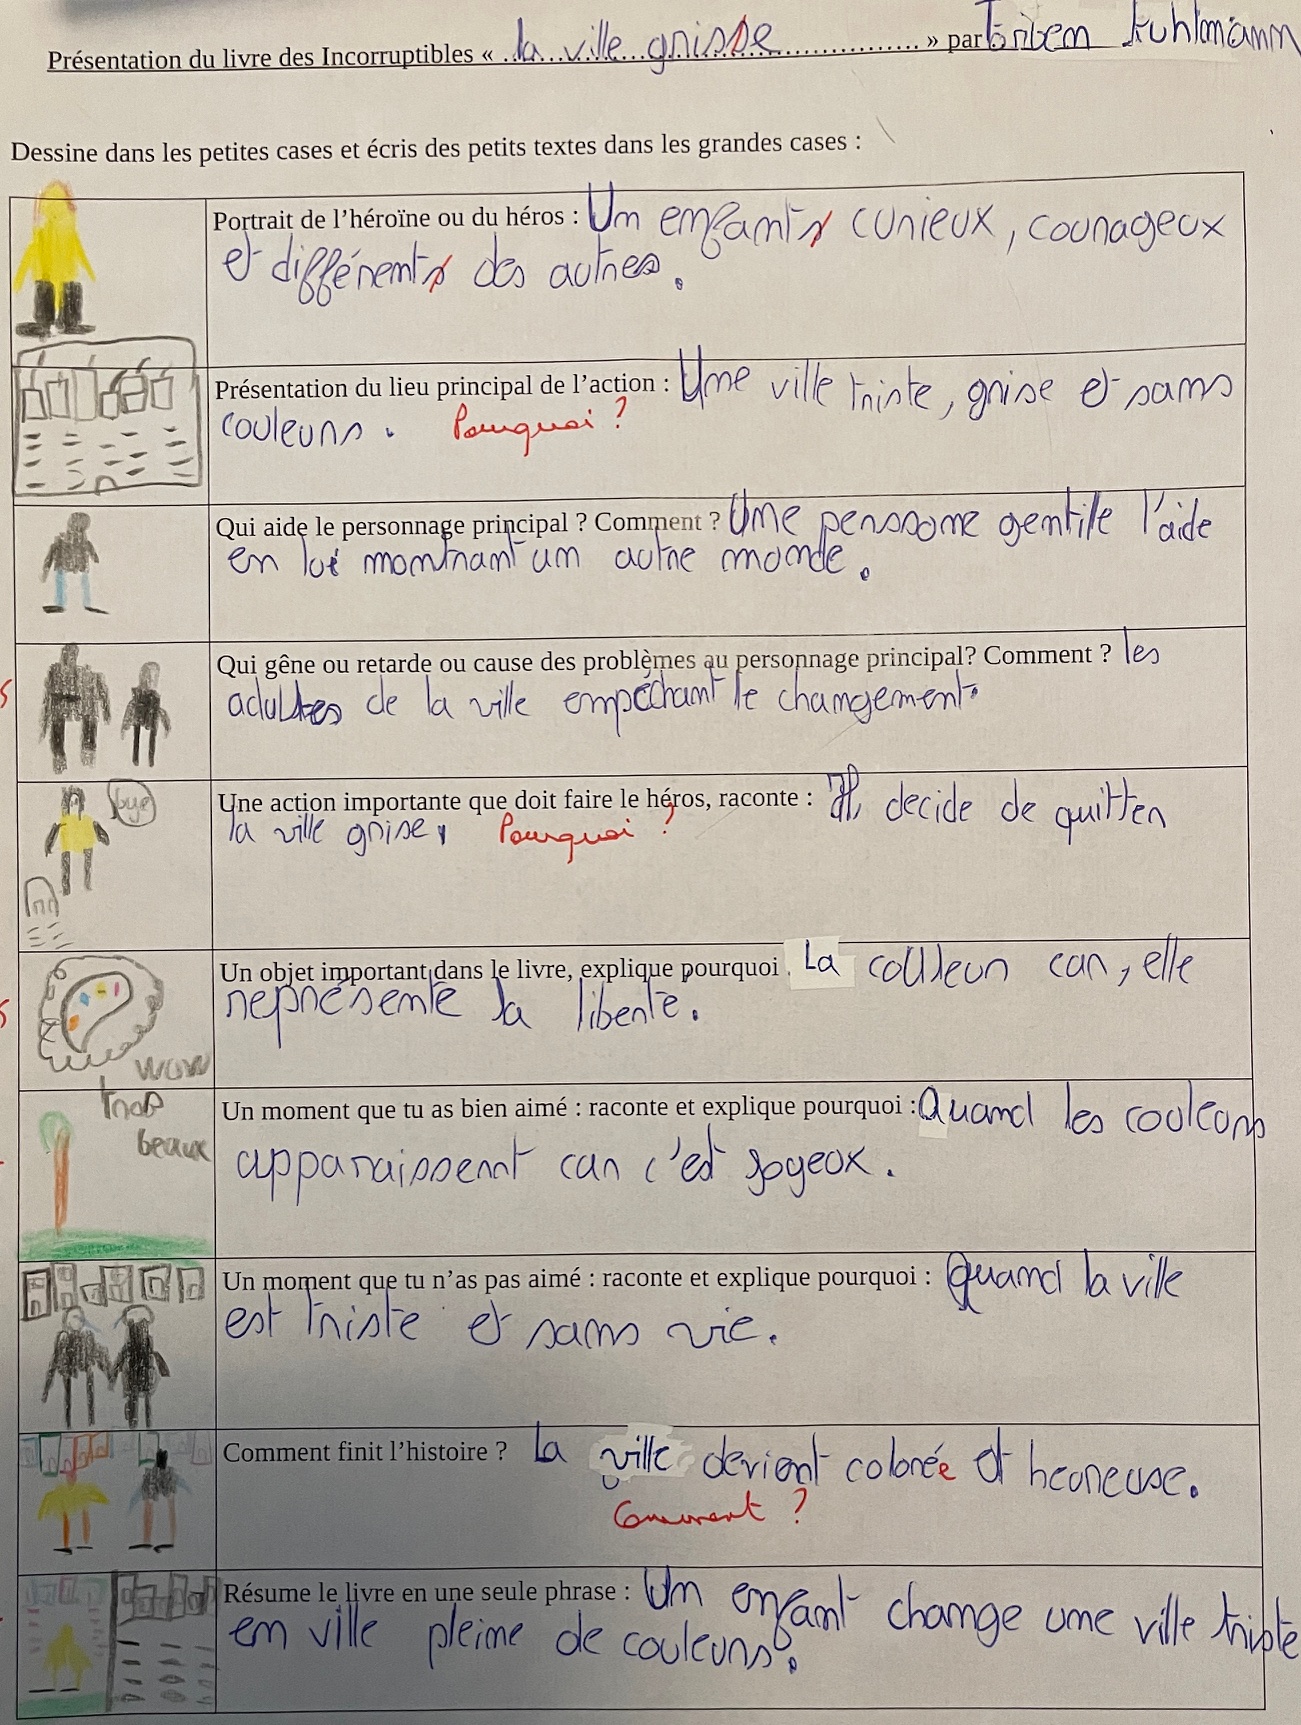 Présentation du livre des Incorruptibles « la ville grisse » par Torben Kuhlmann
Dessine dans les petites cases et écris des petits textes dans les grandes cases :
Portrait de l'héroïne ou du héros : Un enfants curieux, courageux
et différents des autres.
Présentation du lieu principal de l'action : Une ville triste, grise et sans
couleurs. Pourquoi ?
Qui aide le personnage principal ? Comment ? Une perssone gentille l'aide
en lui montrant un autre monde.
Qui gêne ou retarde ou cause des problèmes au personnage principal? Comment ? les
adultes de la ville empêchant le changement.
bye
Une action importante que doit faire le héros, raconte : Il decide de quitter
la ville grise, Pourquoi ?
Un objet important dans le livre, explique pourquoi . La couleur car, elle
représente la liberté.
wow
Un moment que tu as bien aimé : raconte et explique pourquoi : Quand les couleurs
trop
beaux
apparaissennt car c'est joyeux.
Un moment que tu n'as pas aimé : raconte et explique pourquoi : quand la ville
est triste et sans vie.
Comment finit l'histoire ? la ville devient colorée et heureuse.
Comment ?
Résume le livre en une seule phrase : Un enfant change une ville triste
en ville pleine de couleurs.